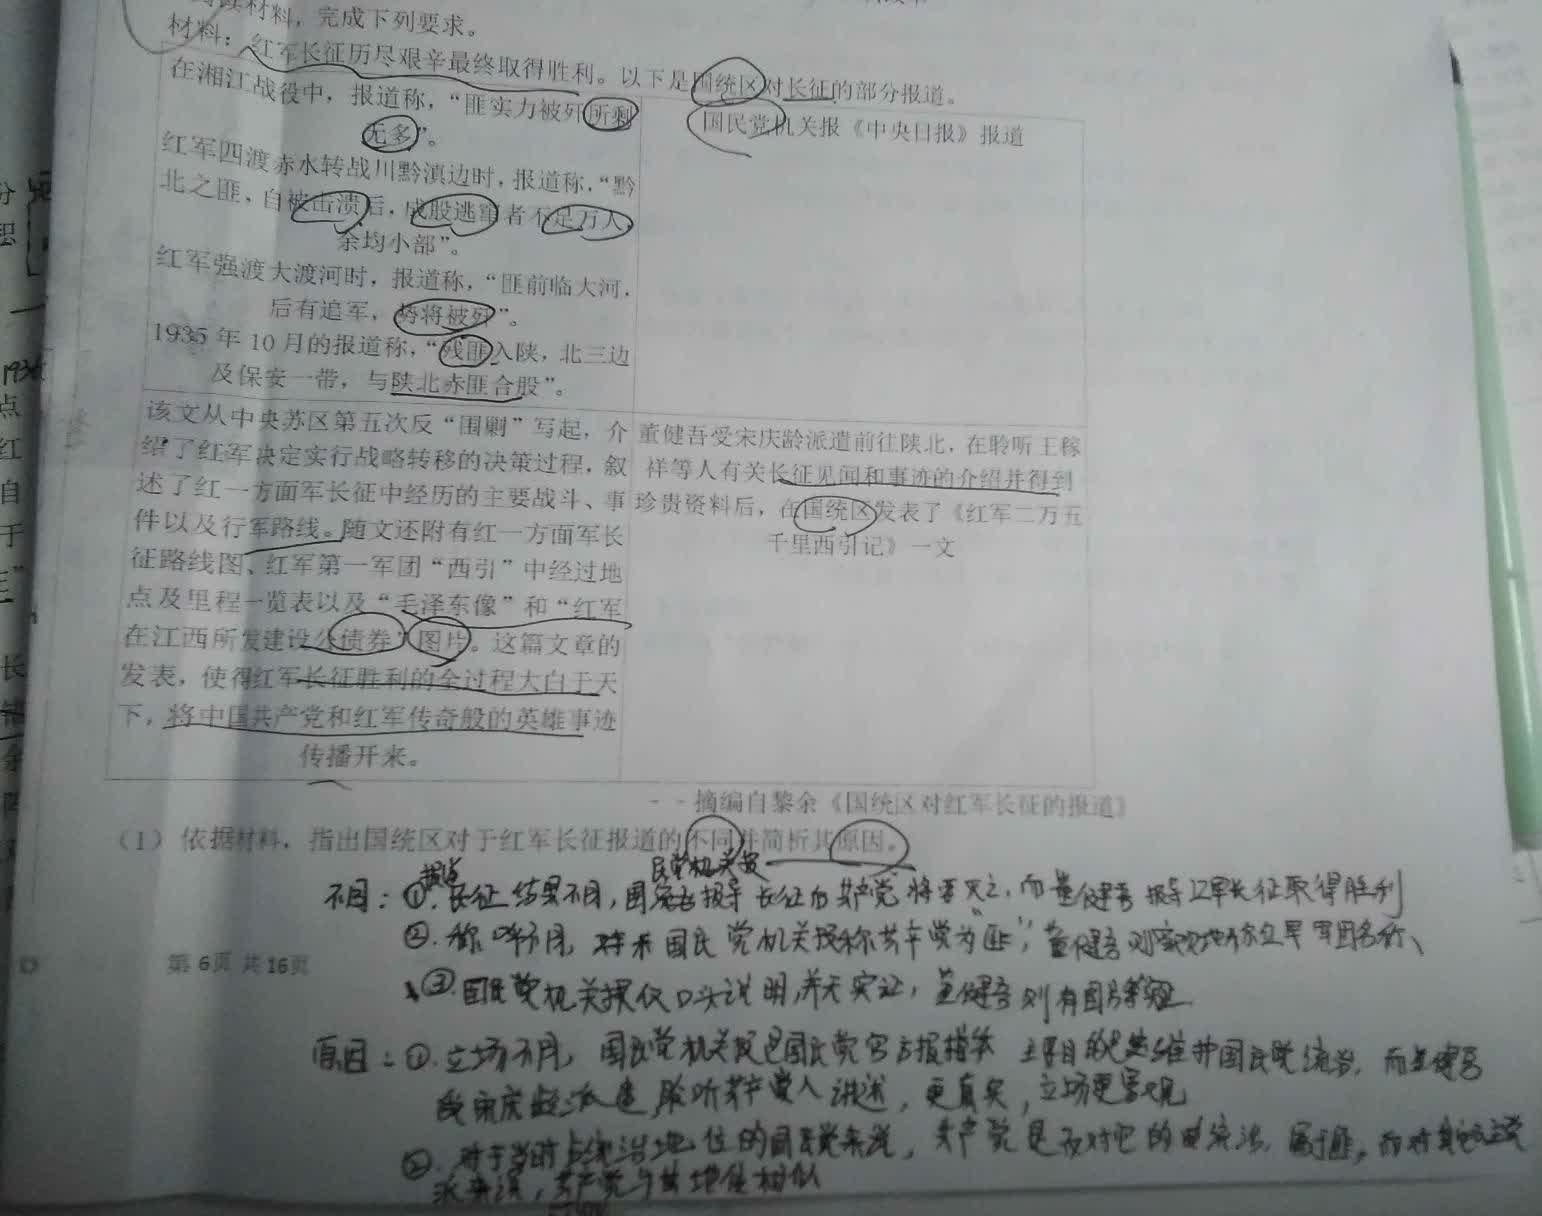 材料，完成下列要求。
材料：红军长征历尽艰辛最终取得胜利。以下是国统区对长征的部分报道。
在湘江战役中，报道称，“匪实力被歼所剩
无多”。
国民党机关报《中央日报》报道
红军四渡赤水转战川黔滇边时，报道称，“黔
北之匪，自被击溃后，成股逃窜者不足万人，
余均小部”。
红军强渡大渡河时，报道称，“匪前临大河，
后有追军，势将被歼”。
1935年10月的报道称，“残匪入陕，北三边
及保安一带，与陕北赤匪合股”。
该文从中央苏区第五次反“围剿”写起，介
绍了红军决定实行战略转移的决策过程，叙
述了红一方面军长征中经历的主要战斗、事
件以及行军路线。随文还附有红一方面军长
征路线图、红军第一军团“西引”中经过地
点及里程一览表以及“毛泽东像”和“红军
在江西所发建设公债券”图片。这篇文章的
发表，使得红军长征胜利的全过程大白于天
下，将中国共产党和红军传奇般的英雄事迹
传播开来。
董健吾受宋庆龄派遣前往陕北，在聆听王稼
祥等人有关长征见闻和事迹的介绍并得到
珍贵资料后，在国统区发表了《红军二万五
千里西引记》一文
--摘编自黎余《国统区对红军长征的报道》
（1）依据材料，指出国统区对于红军长征报道的不同并简析其原因。
民党机关报
不同：①.长征结果不同，国报导长征的共产党将要灭亡，而董健吾报导红军长征取得胜利
②.称呼不同，国民党机关报称共产党为“匪”，董健吾则
③.国民党机关报仅口头说明，并无实证，董健吾则有图片
原因：①.立场不同，国民党机关报是国民党官方报，主要目的是维护国民党统治，而董健吾
受宋庆龄派遣，聆听共产党人讲述，更真实，立场更客观
②.对于当时占统治地位的国民党来说，共产党是反对它的统治，属于匪，而对
来说，共产党与其地位相似
第6页 共16页